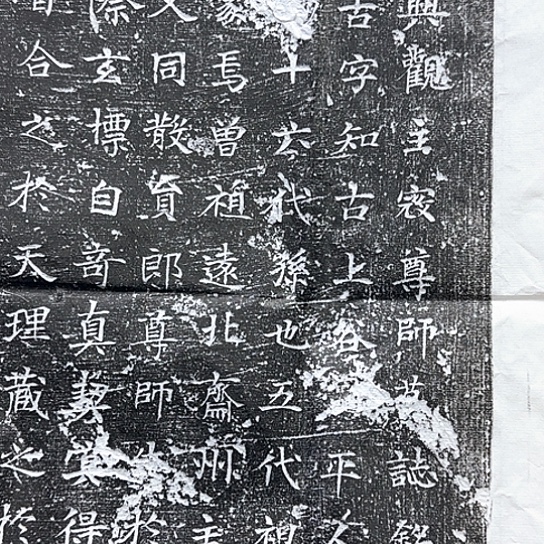 興觀主寇尊師墓誌銘
古字知古上谷平人
十六代孫也五代祖
篆焉曾祖遠北齊州主
文同散員郎尊師於
際玄標自奇真契冥得
合之於天理藏之於